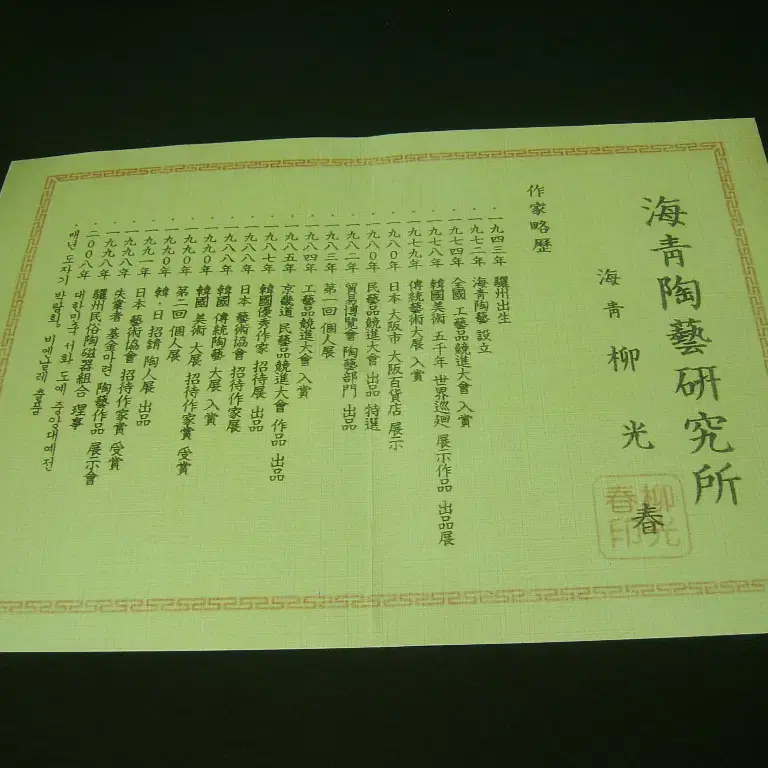 海青陶藝研究所
海青 柳光春
柳光春印
作家略歷
· 一九四三年 驪州出生
· 一九七二年 海青陶藝 設立
· 一九七四年 全國 工藝品競進大會 入賞
· 一九七八年 韓國美術 五千年 世界巡廻 展示作品 出品展
· 一九七九年 傳統藝術大展 入賞
· 一九八0年 日本 大阪市 大阪百貨店 展示
· 一九八0年 民藝品競進大會 出品 特選
· 一九八二年 貿易博覽會 陶藝部門 出品
· 一九八三年 第一回 個人展
· 一九八四年 工藝品競進大會 入賞
· 一九八五年 京畿道 民藝品競進大會 作品 出品
· 一九八七年 韓國優秀作家 招待展 出品
· 一九八八年 日本 藝術協會 招待作家展
· 一九八八年 韓國 傳統陶藝 大展 入賞
· 一九九0年 韓國 美術 大展 招待作家賞 受賞
· 一九九0年 第二回 個人展
· 一九九0年 韓·日 招請 陶人展 出品
· 一九九一年 日本 藝術協會 招待作家賞 受賞
· 一九九八年 失業者 基金마련 陶藝作品 展示會
· 一九九八年 驪州民俗陶磁器組合 理事
· 二00八年 대한민국 서화 도예 중앙대예전
· 매년 도자기 박람회, 비엔날레 출품